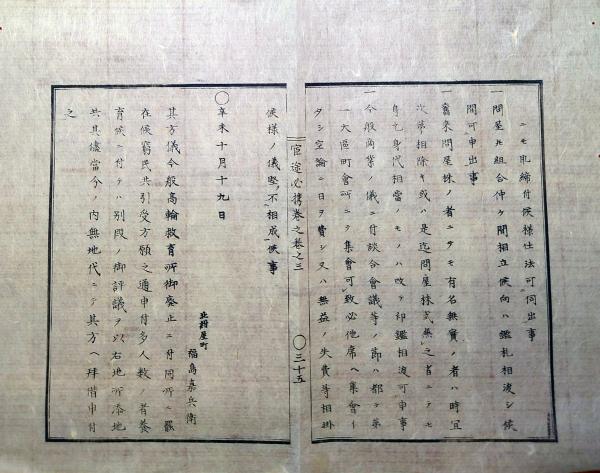 ニモ取締付候様仕法可伺出事
一問屋幷組合仲ケ間相立候向ハ鑑札相渡シ候
間可申出事
一舊來問屋株ノ者ニテモ有名無實ノ者ハ時宜
次第相除キ或ハ是迄問屋株式無之者ニテモ
身元身代相當ノモノハ改テ印鑑相渡可申事
一今般商業ノ儀ニ付談合會議等ノ節ハ都テ第
一大區町會所ニテ集會可致必他席ヘ集會イ
タシ空論ニ日ヲ費シ又ハ無益ノ失費等相掛
官途必携卷之卷之三
〇三十五
候様ノ儀堅不相成候事
〇辛未十月十九日
福島嘉兵衛
其方儀今般高輪救育所御廢止ニ付同所ニ罷
在候窮民共引受方願之通申付多人數
養
育候ニ付テハ別段ノ御評議ヲ以右地所添地
共其儘當分ノ内無地代ニテ其方ヘ拜借申付
之